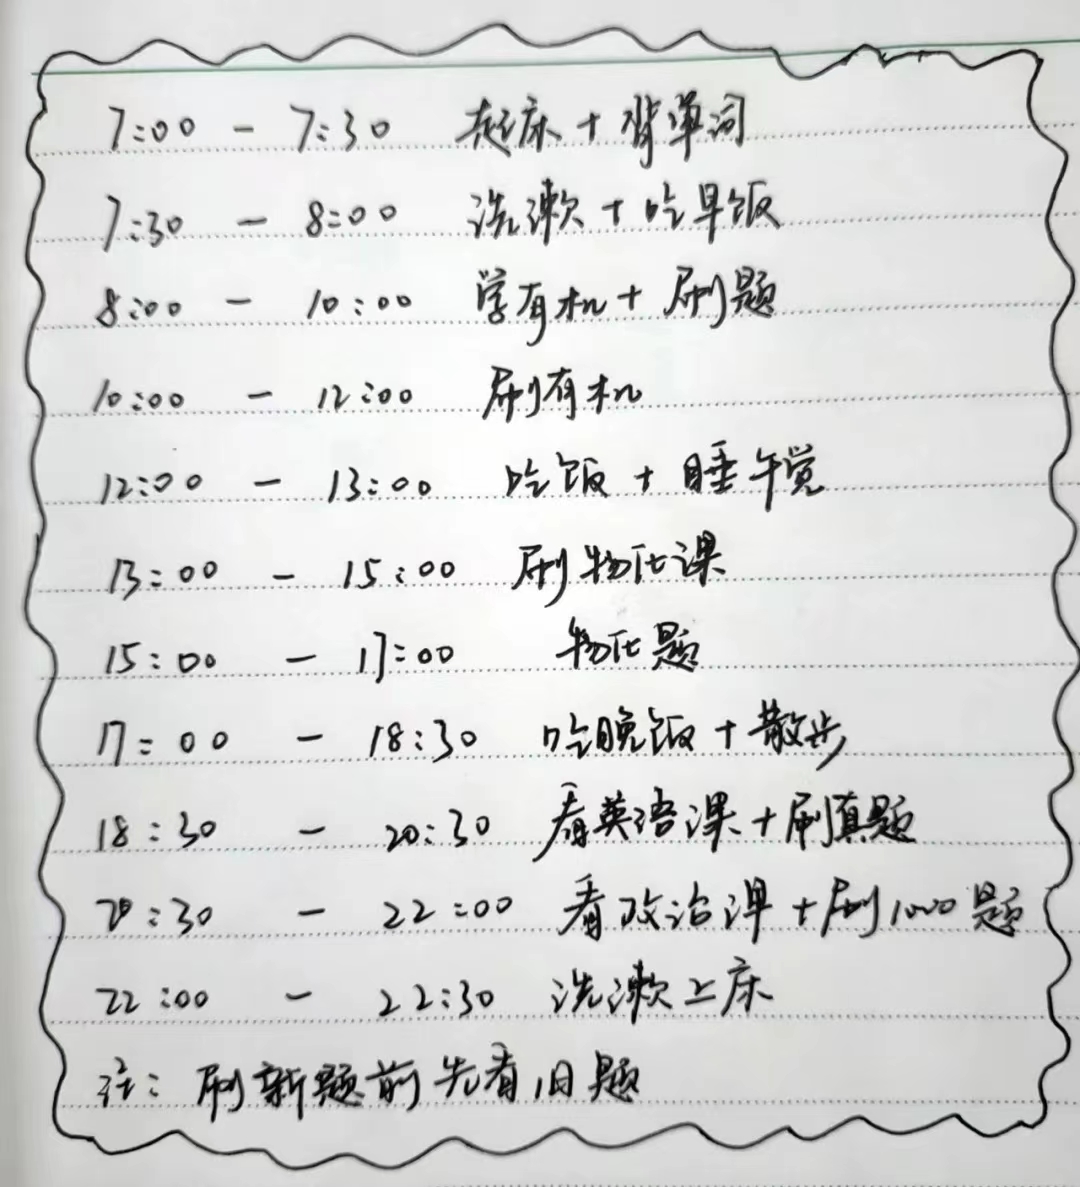 7:00 - 7:30 起床 + 背单词
7:30 - 8:00 洗漱 + 吃早饭
8:00 - 10:00 学有机 + 刷题
10:00 - 12:00 刷有机
12:00 - 13:00 吃饭 + 睡午觉
13:00 - 15:00 刷物化课
15:00 - 17:00 物化题
17:00 - 18:30 吃晚饭 + 散步
18:30 - 20:30 看英语课 + 刷真题
20:30 - 22:00 看政治课 + 刷1000题
22:00 - 22:30 洗漱上床
注: 刷新题前先看旧题